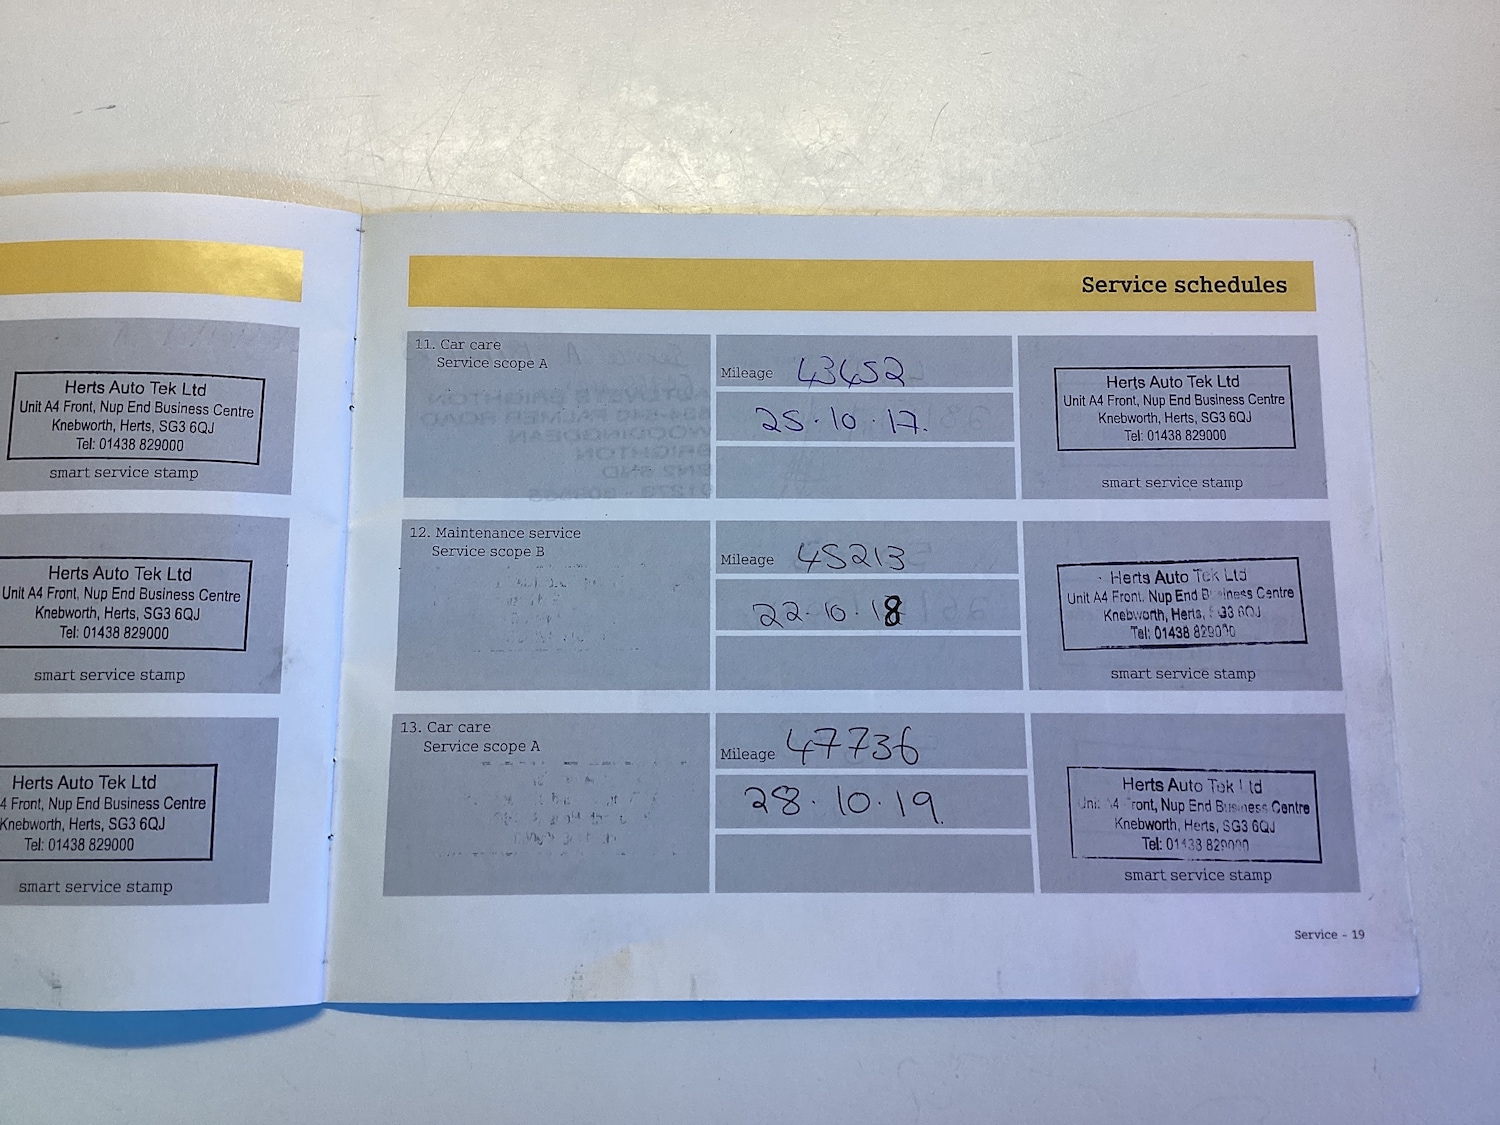 Herts Auto Tek Ltd
Unit A4 Front, Nup End Business Centre
Knebworth, Herts, SG3 6QJ
Tel: 01438 829000
smart service stamp
Herts Auto Tek Ltd
Unit A4 Front, Nup End Business Centre
Knebworth, Herts, SG3 6QJ
Tel: 01438 829000
smart service stamp
Herts Auto Tek Ltd
4 Front, Nup End Business Centre
Knebworth, Herts, SG3 6QJ
Tel: 01438 829000
smart service stamp
Service schedules
11. Car care
Service scope A
Mileage 43652
25·10·17.
Herts Auto Tek Ltd
Unit A4 Front, Nup End Business Centre
Knebworth, Herts, SG3 6QJ
Tel: 01438 829000
smart service stamp
12. Maintenance service
Service scope B
Mileage 45213
22·10·18
Herts Auto Tek Ltd
Unit A4 Front, Nup End Business Centre
Knebworth, Herts, SG3 6QJ
Tel: 01438 829000
smart service stamp
13. Car care
Service scope A
Mileage 47736
28·10·19.
Herts Auto Tek Ltd
Unit A4 Front, Nup End Business Centre
Knebworth, Herts, SG3 6QJ
Tel: 01438 829000
smart service stamp
Service - 19